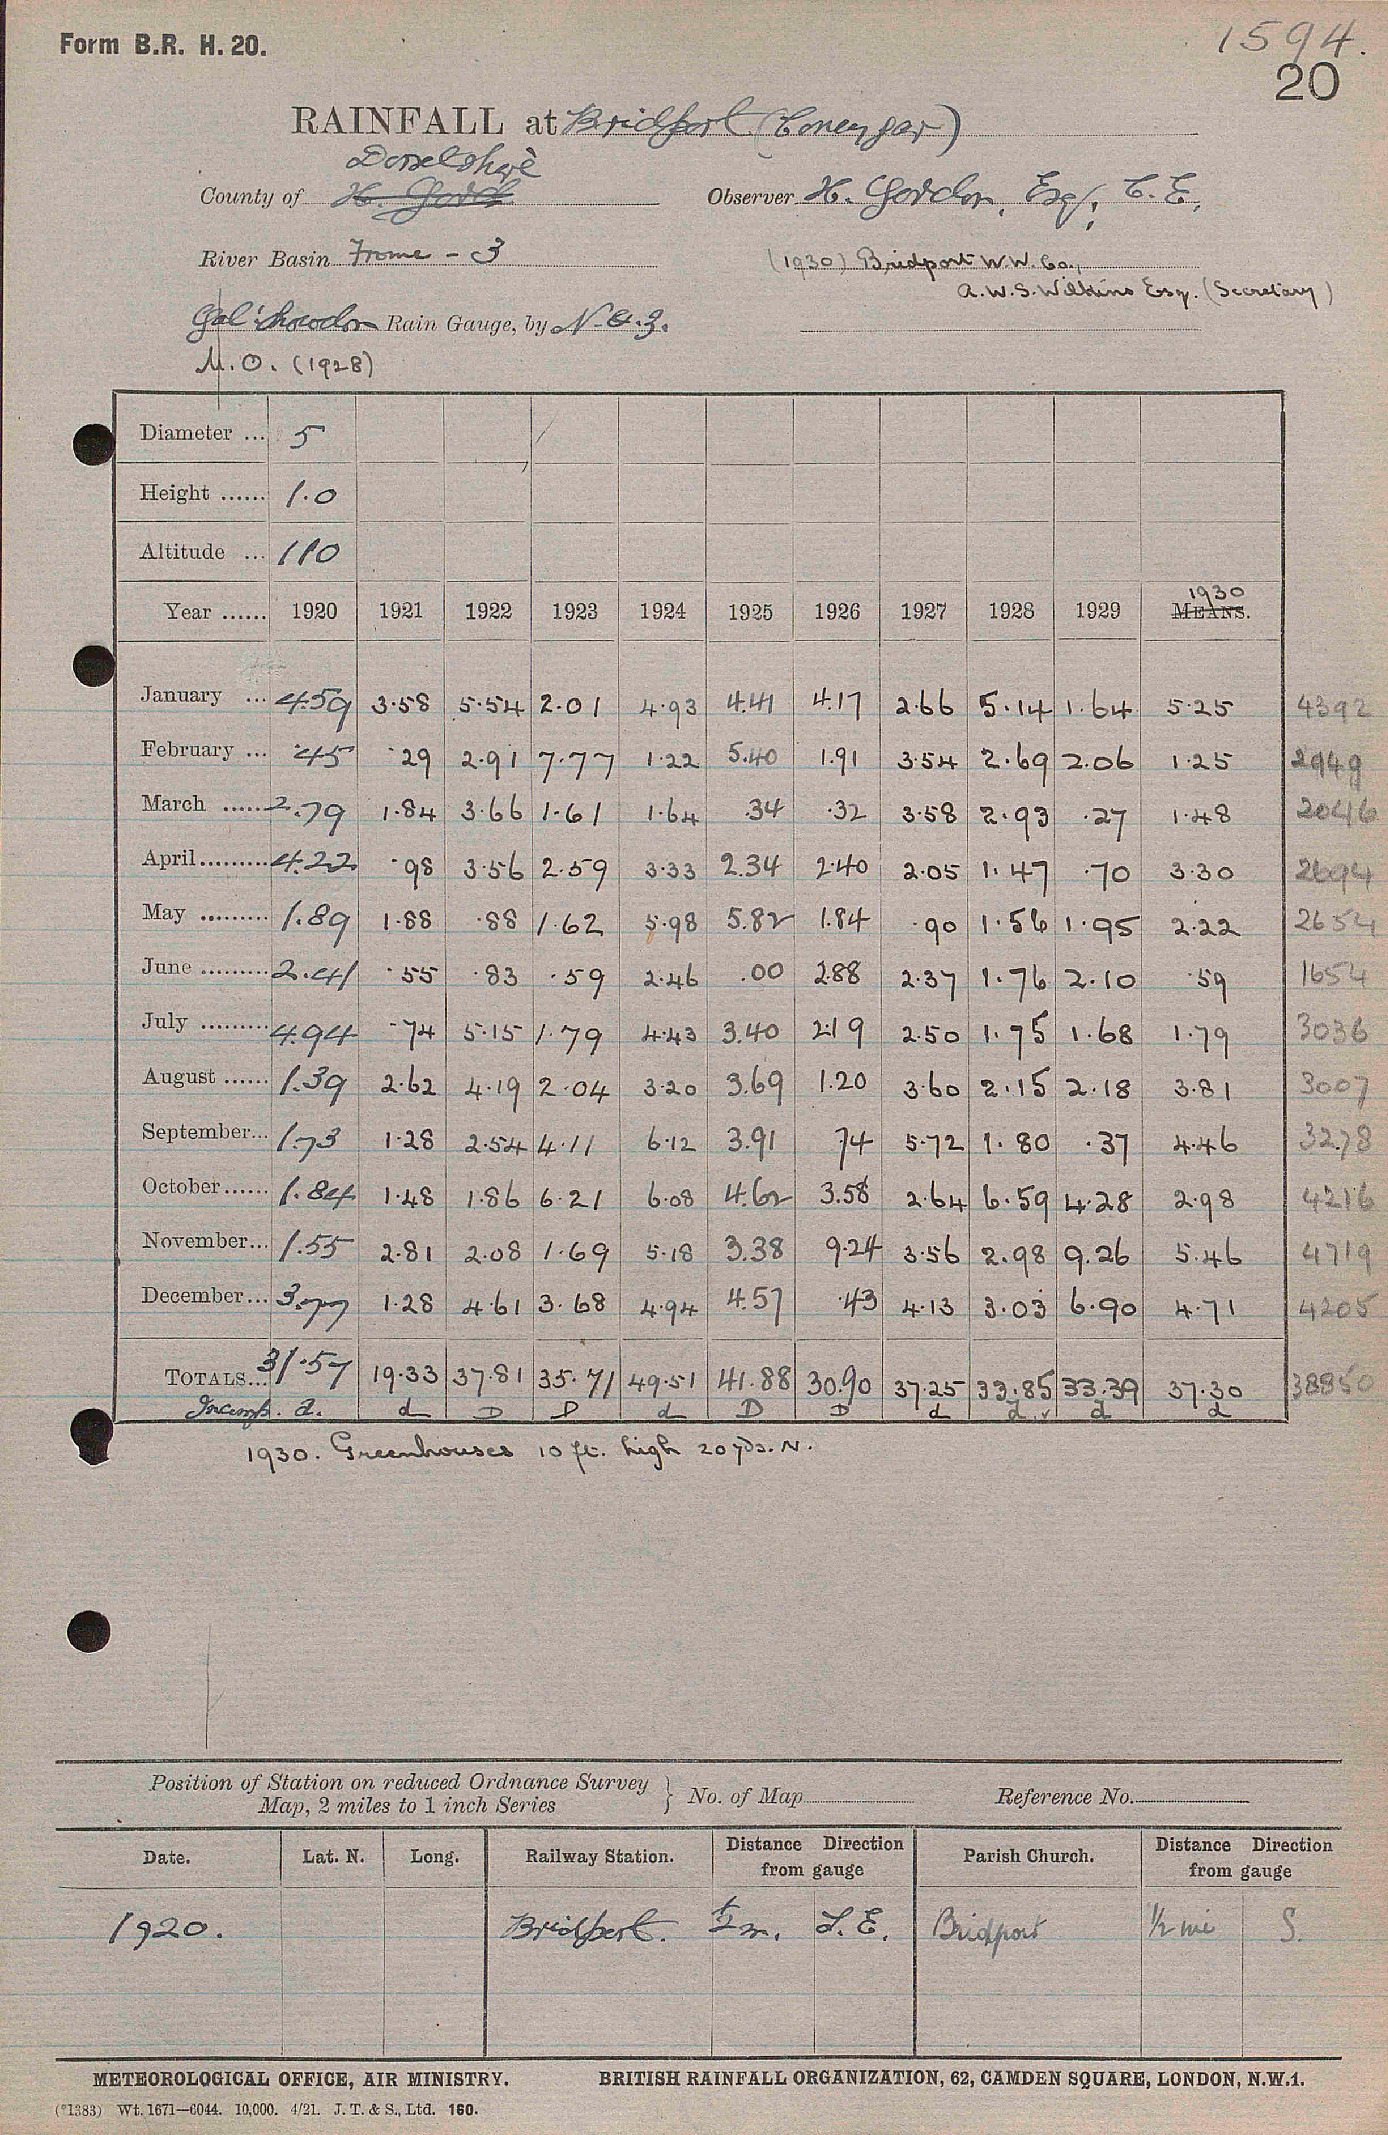 Form B.R. H. 20.
1594.
20
RAINFALL at Bridport (Coneygar)
Dorsetshire
County of H. Gordon Observer H. Gordon, Esq., C.E.
River Basin Frome - 3 (1930) Bridport W.W. Co.,
A.W.S. Wilkins Esq. (Secretary)
Rain Gauge, by N. & Z.
M.O. (1928)
Diameter ... 5
Height ...... 1.0
Altitude ... 110
1930
Year ...... 1920 1921 1922 1923 1924 1925 1926 1927 1928 1929 MEANS.
January ... 4.59 3.58 5.54 2.01 4.93 4.41 4.17 2.66 5.14 1.64 5.25 4392
February ... .45 .29 2.91 7.77 1.22 5.40 1.91 3.54 2.69 2.06 1.25 2949
March ...... 2.79 1.84 3.66 1.61 1.64 .34 .32 3.58 2.93 .27 1.48 2046
April ......... 4.22 .98 3.56 2.59 3.33 2.34 2.40 2.05 1.47 .70 3.30 2694
May ......... 1.89 1.88 .88 1.62 5.98 5.82 1.84 .90 1.56 1.95 2.22 2654
June ......... 2.41 .55 .83 .59 2.46 .00 2.88 2.37 1.76 2.10 .59 1654
July ......... 4.94 .74 5.15 1.79 4.43 3.40 2.19 2.50 1.75 1.68 1.79 3036
August ...... 1.39 2.62 4.19 2.04 3.20 3.69 1.20 3.60 2.15 2.18 3.81 3007
September... 1.73 1.28 2.54 4.11 6.12 3.91 74 5.72 1.80 .37 4.46 3278
October ...... 1.84 1.48 1.86 6.21 6.08 4.62 3.58 2.64 6.59 4.28 2.98 4216
November... 1.55 2.81 2.08 1.69 5.18 3.38 9.24 3.56 2.98 9.26 5.46 4719
December ... 3.77 1.28 4.61 3.68 4.94 4.57 .43 4.13 3.03 6.90 4.71 4205
TOTALS... 31.57 19.33 37.81 35.71 49.51 41.88 30.90 37.25 33.85 33.39 37.30 38850
d. d D D d D D d d d d
1930. Greenhouses 10 ft. high 20 yds. N.
Position of Station on reduced Ordnance Survey
Map, 2 miles to 1 inch Series } No. of Map Reference No.
Date. Lat. N. Long. Railway Station. Distance Direction from gauge Parish Church. Distance Direction from gauge
1920. Bridport. 1/2 m. S.E. Bridport 1/2 mi S.
METEOROLOGICAL OFFICE, AIR MINISTRY. BRITISH RAINFALL ORGANIZATION, 62, CAMDEN SQUARE, LONDON, N.W.1.
(*1383) Wt. 1671—6044. 10,000. 4/21. J. T. & S., Ltd. 160.